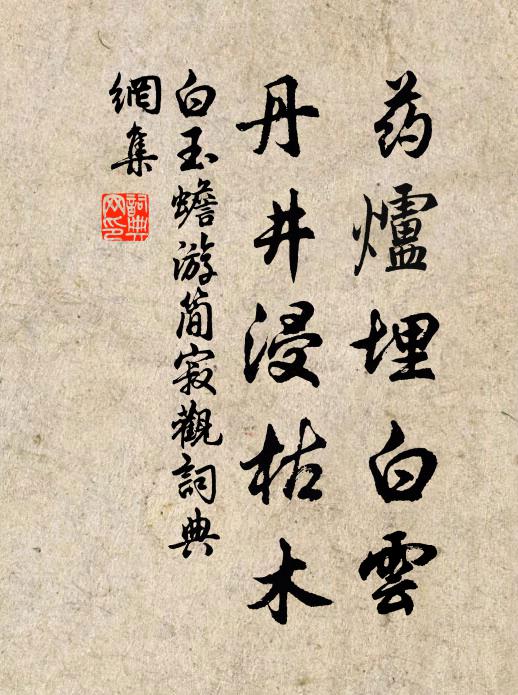 药爐埋白雲
丹井浸枯木
白玉蟾游簡寂觀詞典
網集
詞典
网印